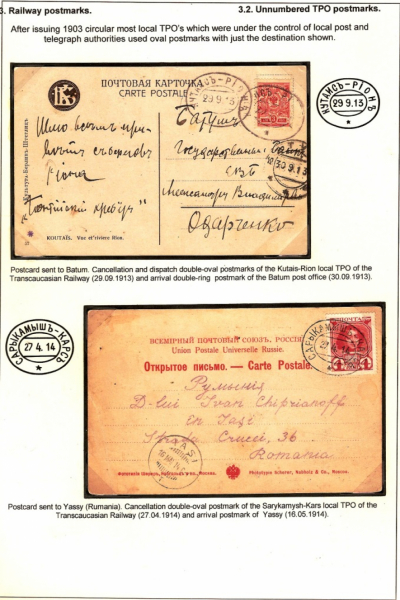 3. Railway postmarks.
3.2. Unnumbered TPO postmarks.
After issuing 1903 circular most local TPO's which were under the control of local post and
telegraph authorities used oval postmarks with just the destination shown.
ПОЧТОВАЯ КАРТОЧКА
CARTE POSTALE
КУТАИСЪ-РІОНЪ
29 9.13
КУТАИСЪ-РІОНЪ
29 9.13
Батумъ
Государственный Банкъ
30 9.13
Александру
Одарченко
KOUTAÏS. Vue et rivière Rion.
Postcard sent to Batum. Cancellation and dispatch double-oval postmarks of the Kutais-Rion local TPO of the
Transcaucasian Railway (29.09.1913) and arrival double-ring postmark of the Batum post office (30.09.1913).
САРЫКАМЫШЪ-КАРСЪ
27 4. 14
ВСЕМІРНЫЙ ПОЧТОВЫЙ СОЮЗЪ. РОССІЯ.
Union Postale Universelle Russie.
Открытое письмо. — Carte Postale.
ПОЧТА
САРЫКАМЫШЪ
27
Румынія
D-lui Ivan Chiprianoff
en Iași
Strada Crucci, 36
Romania
IASI
Phototypie Scherer, Nabholz & Co., Moscou.
Postcard sent to Yassy (Rumania). Cancellation double-oval postmark of the Sarykamysh-Kars local TPO of the
Transcaucasian Railway (27.04.1914) and arrival postmark of Yassy (16.05.1914).